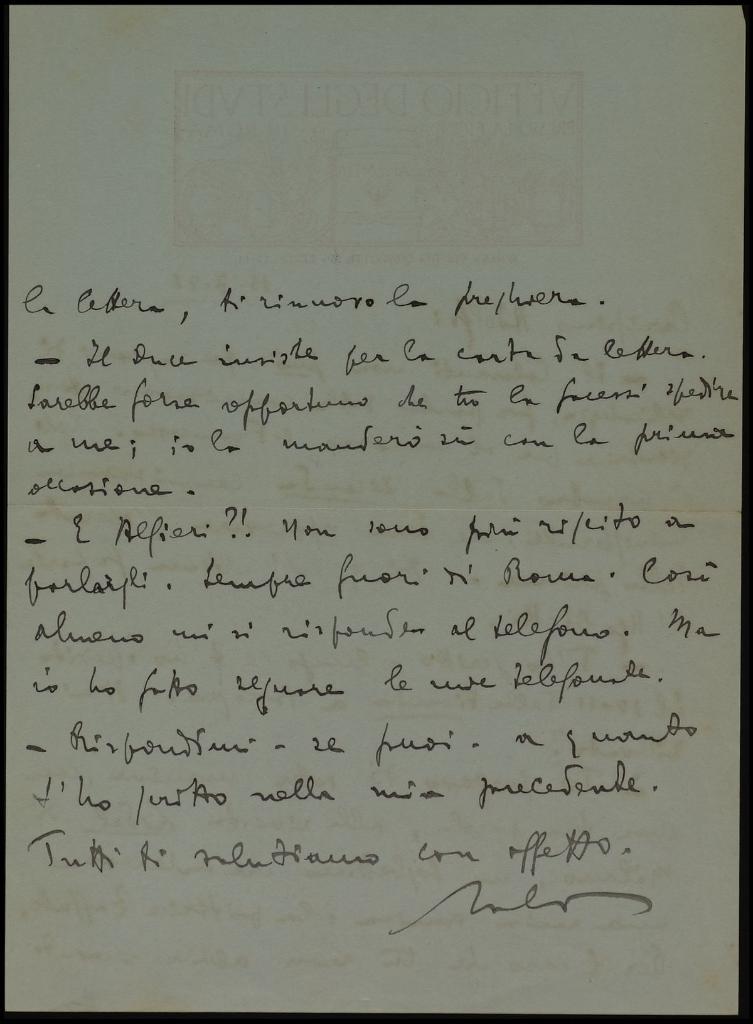 la lettera, ti rinnovo la preghiera.
– Il Duce insiste per la carta da lettera.
Sarebbe forse opportuno che tu la facessi spedire
a me; io la manderò su con la prima
occasione.
– E Alfieri?!. Non sono più riuscito a
parlargli. Sempre fuori di Roma. Così
almeno mi si risponde al telefono. Ma
io ho fatto segnare le mie telefonate.
– Rispondimi – se puoi – a quanto
t'ho scritto nella mia precedente.
Tutti ti salutiamo con affetto.